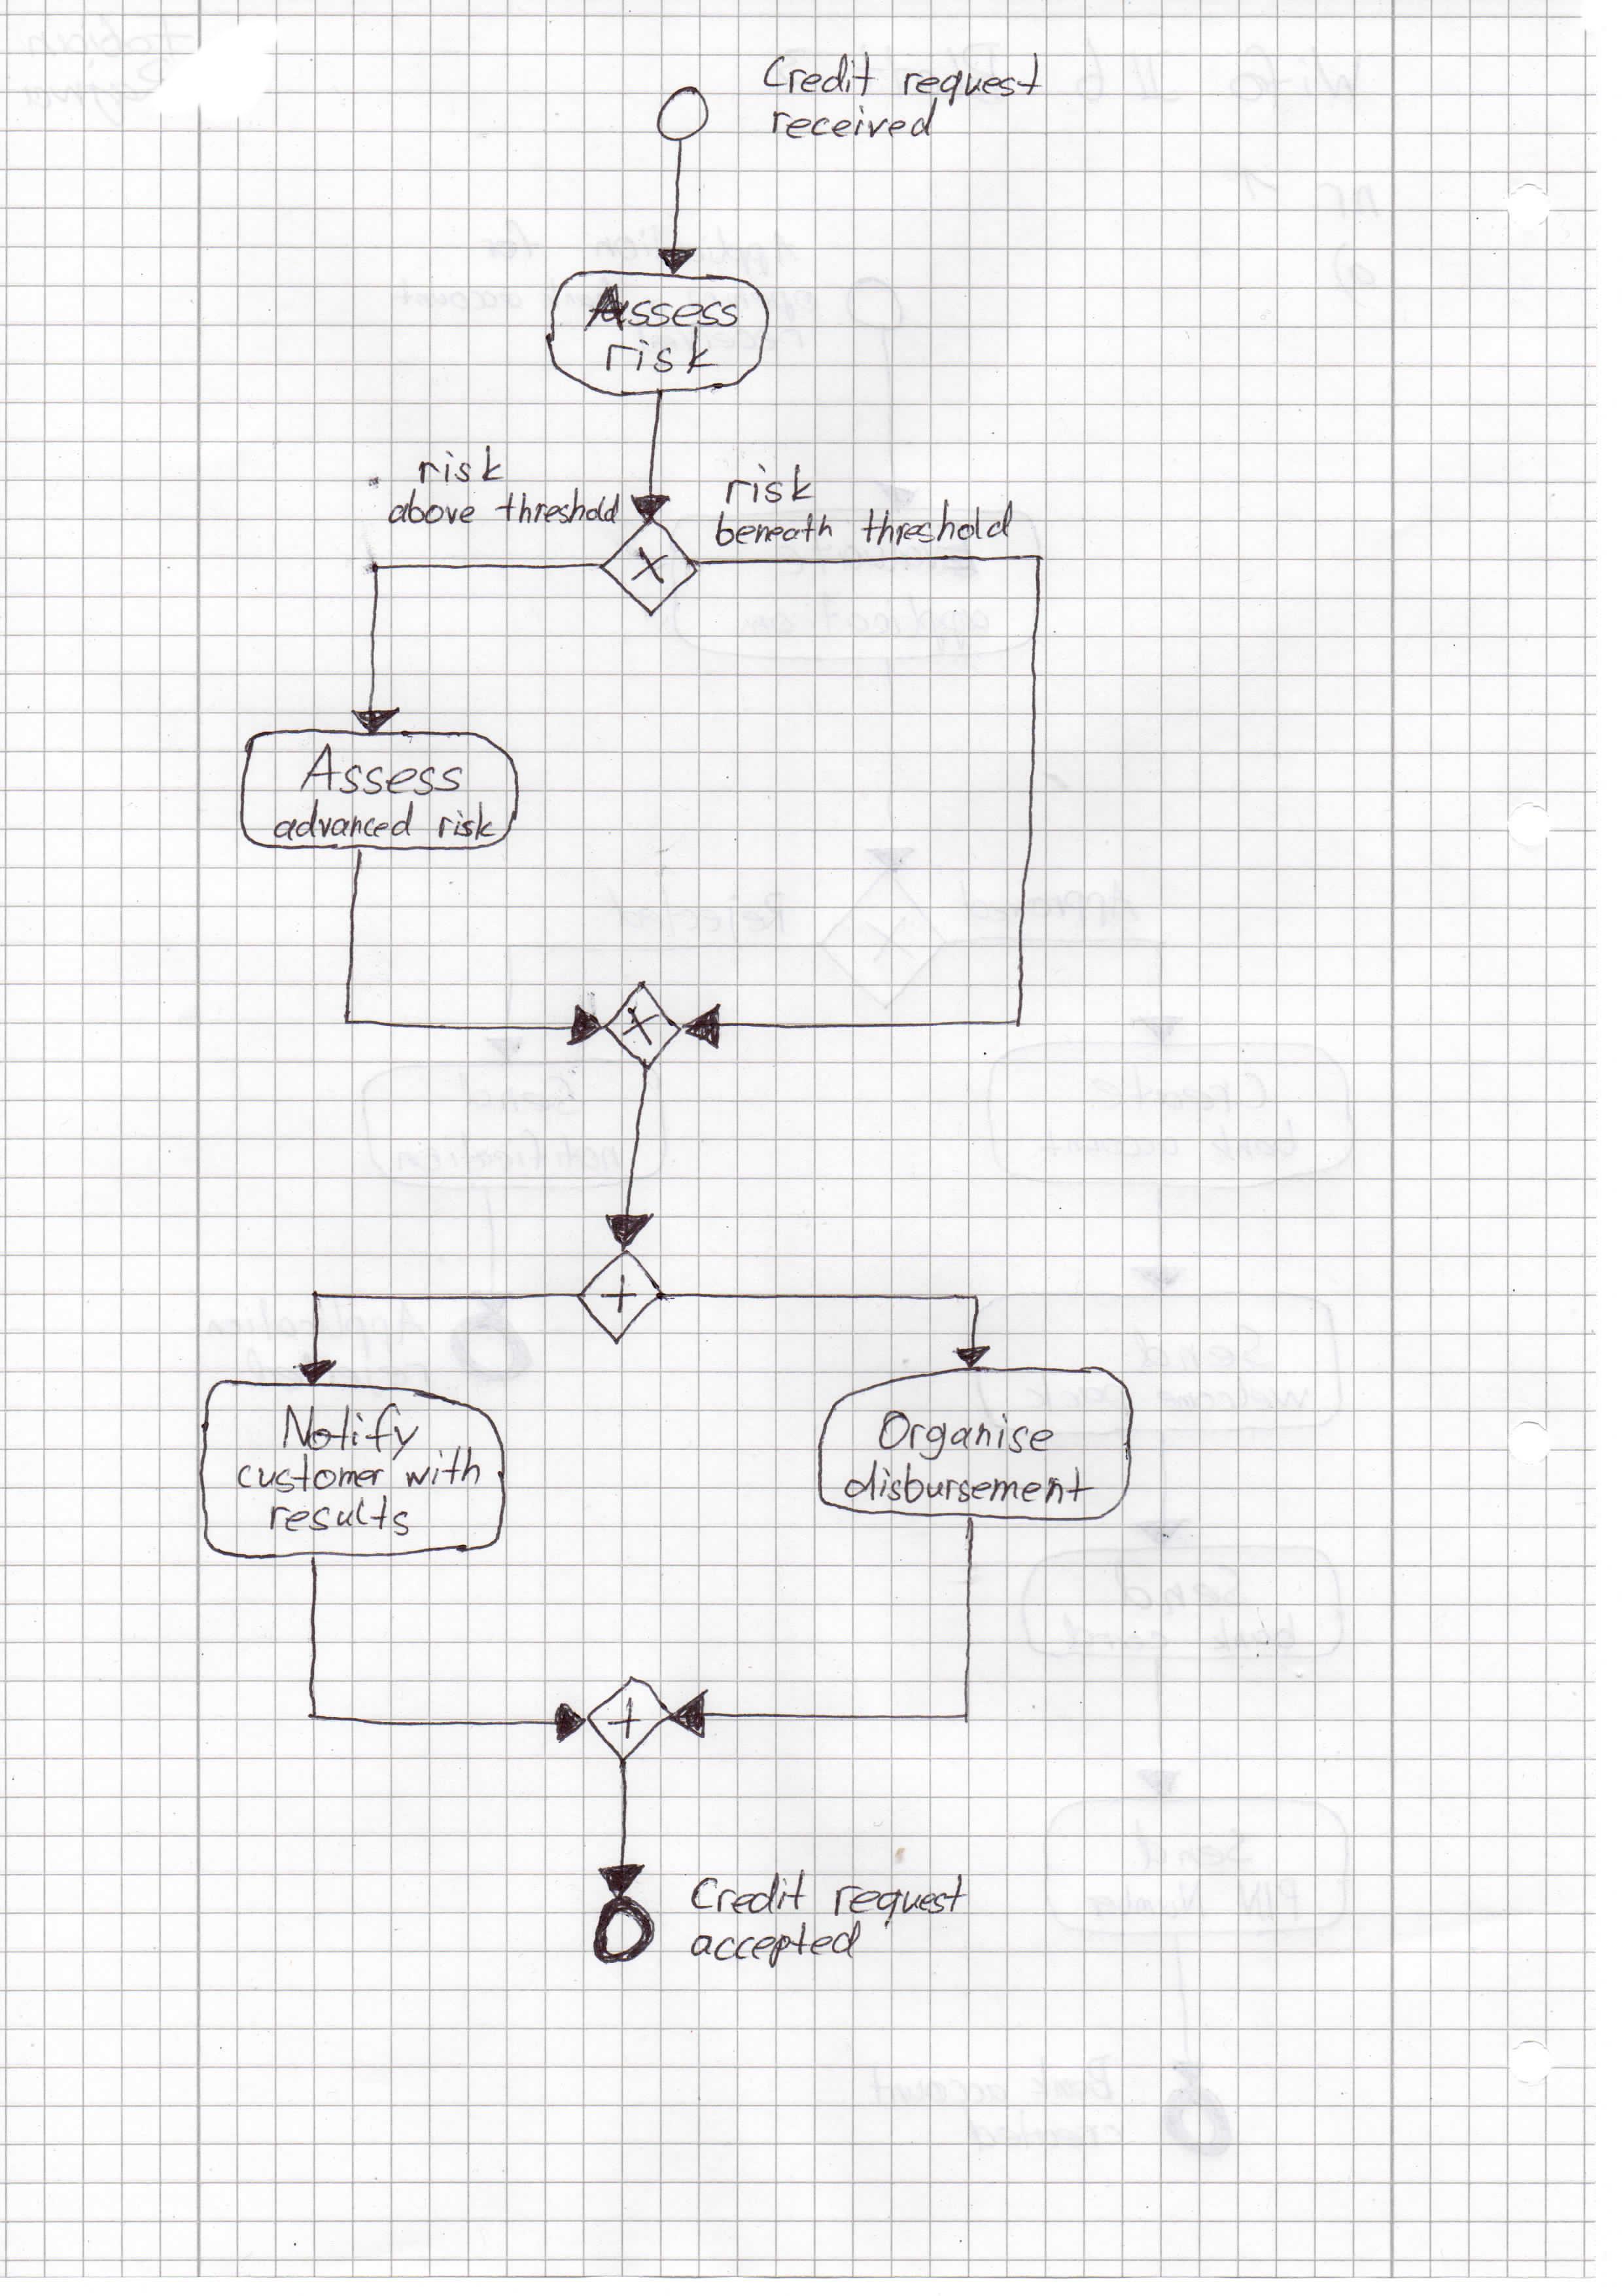 Credit request
received
Assess
risk
risk
above threshold
risk
beneath threshold
Assess
advanced risk
Notify
customer with
results
Organise
disbursement
Credit request
accepted